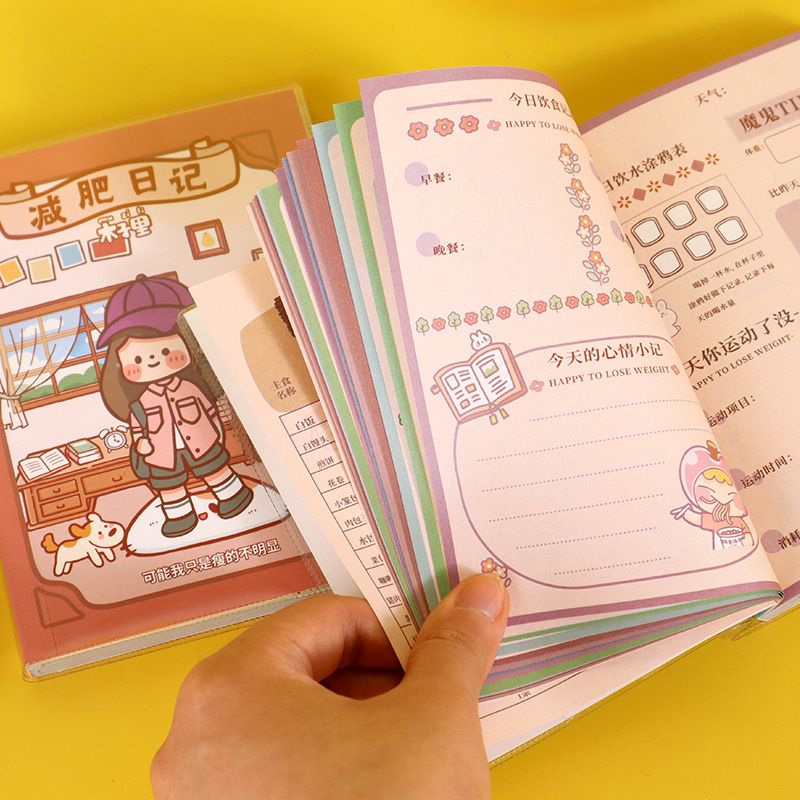 减肥日记
木子里
可能我只是瘦的不明显
主食
名称
白饭
白馒头
煎饼
花卷
小笼包
肉包
水饺
今日饮食记
HAPPY TO LOSE WEIGHT
早餐：
晚餐：
今天的心情小记
HAPPY TO LOSE WEIGHT
天气：
魔鬼TI
体重：
日饮水涂鸦表
比昨天
喝掉一杯水，在杯子里
涂鸦好做下记录，记录下每
天的喝水量
天你运动了没
HAPPY TO LOSE WEIGHT
运动项目：
运动时间：
消耗